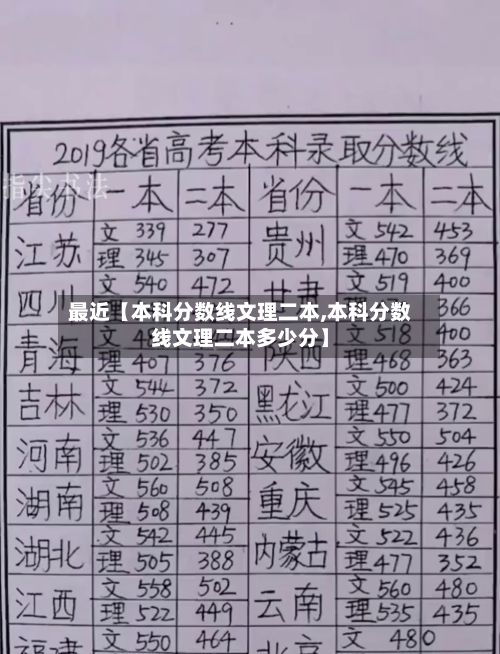 2019各省高考本科录取分数线
指尖书法
省份 一本 二本 省份 一本 二本
江苏 文 339 277 贵州 文 542 453
理 345 307 理 470 369
四川 文 540 472 甘肃 文 519 400
366
最近【本科分数线文理二本,本科分数
线文理二本多少分】
青海 文 518 400
理 407 376 陕西 理 468 363
吉林 文 544 372 黑龙江 文 500 424
理 530 350 理 477 372
河南 文 536 447 安徽 文 550 504
理 502 385 理 496 426
湖南 文 560 508 重庆 文 545 458
理 508 439 理 525 435
湖北 文 542 445 内蒙古 文 522 436
理 505 388 理 477 352
江西 文 558 502 云南 文 560 480
理 522 449 理 535 435
福建 文 550 464 北京 文 480